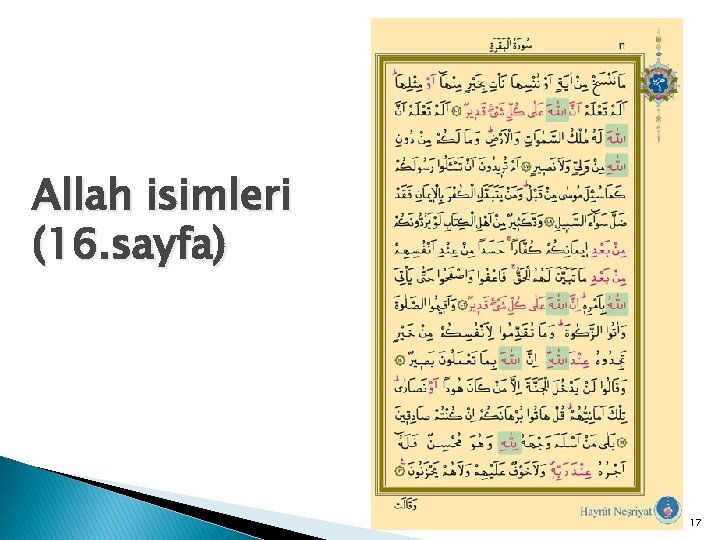 Allah isimleri
(16. sayfa)
سُورَةُ الْبَقَرَةِ
مَا نَنْسَخْ مِنْ اٰيَةٍ اَوْ نُنْسِهَا نَأْتِ بِخَيْرٍ مِنْهَٓا اَوْ مِثْلِهَا
اَلَمْ تَعْلَمْ اَنَّ اللّٰهَ عَلٰى كُلِّ شَيْءٍ قَد۪يرٌ اَلَمْ تَعْلَمْ اَنَّ
اللّٰهَ لَهُ مُلْكُ السَّمٰوَاتِ وَالْاَرْضِ وَمَا لَكُمْ مِنْ دُونِ
اللّٰهِ مِنْ وَلِيٍّ وَلَا نَص۪يرٍ اَمْ تُر۪يدُونَ اَنْ تَسْـَٔلُوا رَسُولَكُمْ
كَمَا سُئِلَ مُوسٰى مِنْ قَبْلُ وَمَنْ يَتَبَدَّلِ الْكُفْرَ بِالْا۪يمَانِ فَقَدْ
ضَلَّ سَوَٓاءَ السَّب۪يلِ وَدَّ كَث۪يرٌ مِنْ اَهْلِ الْكِتَابِ لَوْ يَرُدُّونَكُمْ
مِنْ بَعْدِ ا۪يمَانِكُمْ كُفَّارًا حَسَدًا مِنْ عِنْدِ اَنْفُسِهِمْ
مِنْ بَعْدِ مَا تَبَيَّنَ لَهُمُ الْحَقُّ فَاعْفُوا وَاصْفَحُوا حَتّٰى يَأْتِيَ
اللّٰهُ بِاَمْرِه۪ اِنَّ اللّٰهَ عَلٰى كُلِّ شَيْءٍ قَد۪يرٌ وَاَق۪يمُوا الصَّلٰوةَ
وَاٰتُوا الزَّكٰوةَ وَمَا تُقَدِّمُوا لِاَنْفُسِكُمْ مِنْ خَيْرٍ
تَجِدُوهُ عِنْدَ اللّٰهِ اِنَّ اللّٰهَ بِمَا تَعْمَلُونَ بَص۪يرٌ
وَقَالُوا لَنْ يَدْخُلَ الْجَنَّةَ اِلَّا مَنْ كَانَ هُودًا اَوْ نَصَارٰى
تِلْكَ اَمَانِيُّهُمْ قُلْ هَاتُوا بُرْهَانَكُمْ اِنْ كُنْتُمْ صَادِق۪ينَ
بَلٰى مَنْ اَسْلَمَ وَجْهَهُ لِلّٰهِ وَهُوَ مُحْسِنٌ فَلَهُٓ
اَجْرُهُ عِنْدَ رَبِّه۪ وَلَا خَوْفٌ عَلَيْهِمْ وَلَا هُمْ يَحْزَنُونَ
وَقَالَتِ
Hayrât Neşriyat
17